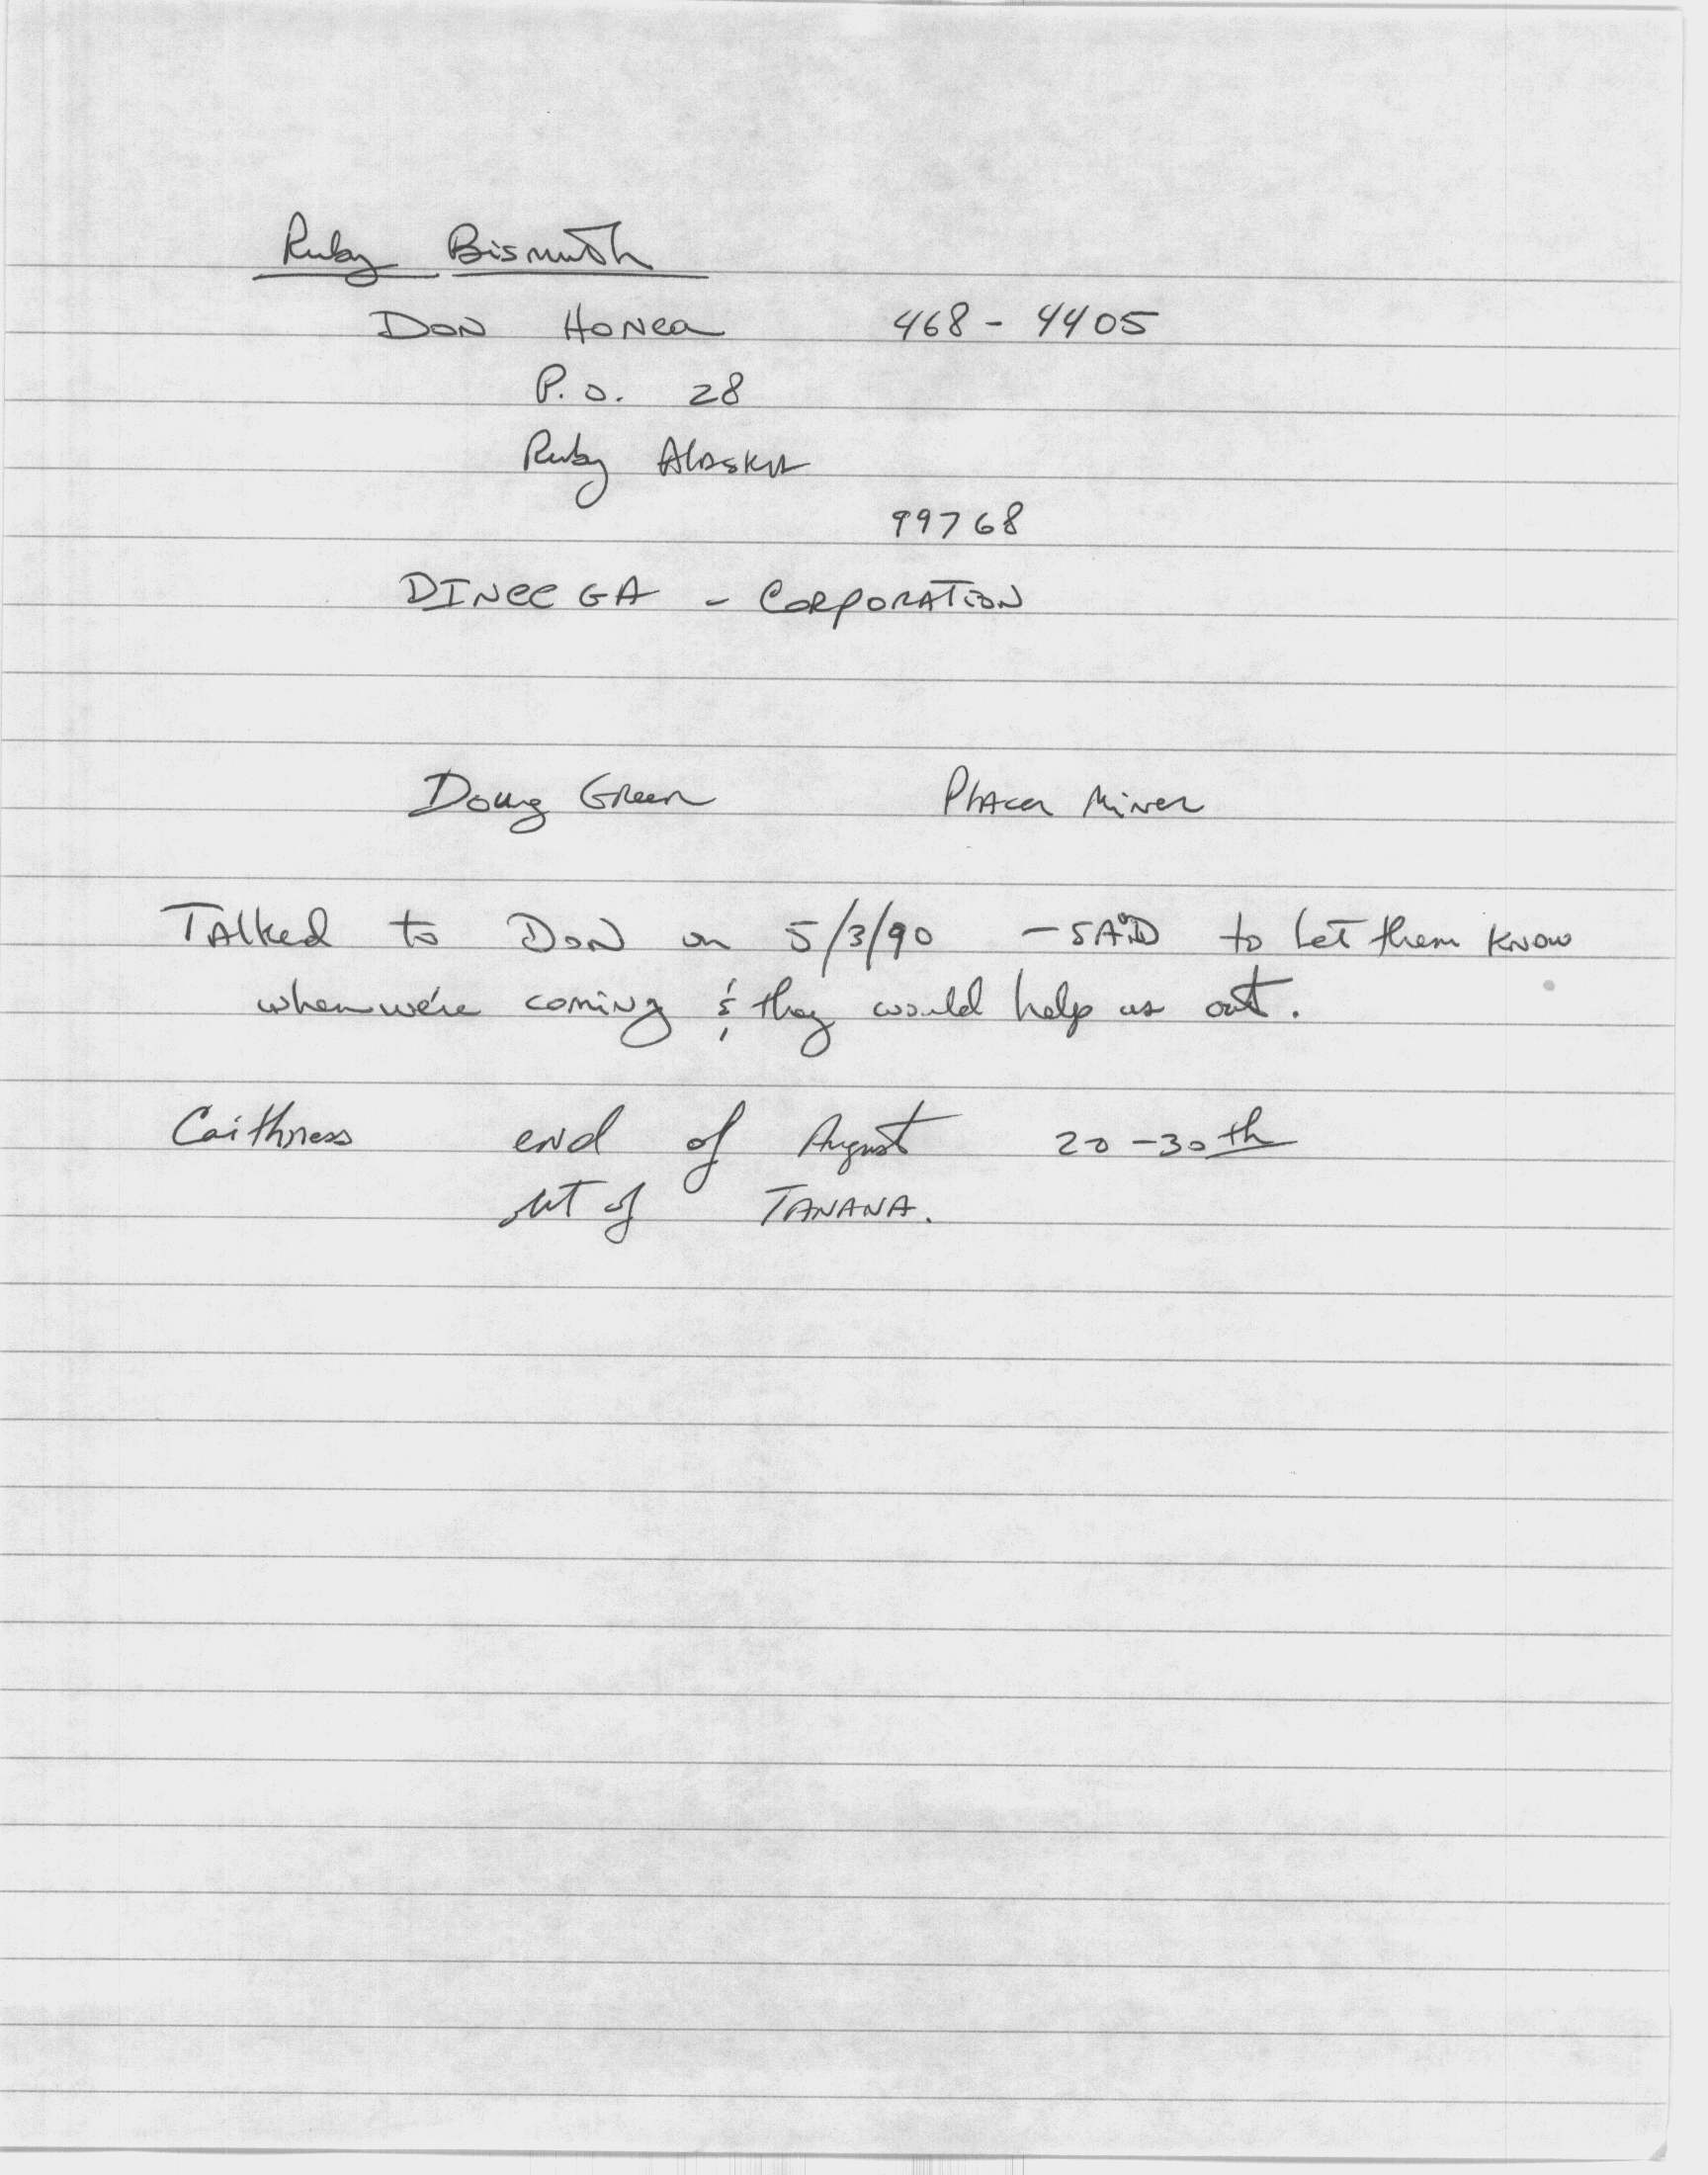 Ruby Bismuth
Don Honea 468-4405
P.O. 28
Ruby Alaska
99768
DINEEGA - CORPORATION
Doug Green Placer Miner
Talked to Don on 5/3/90 - SAID to let them know
when we're coming & they would help us out.
Caithness end of August 20-30th
out of TANANA.